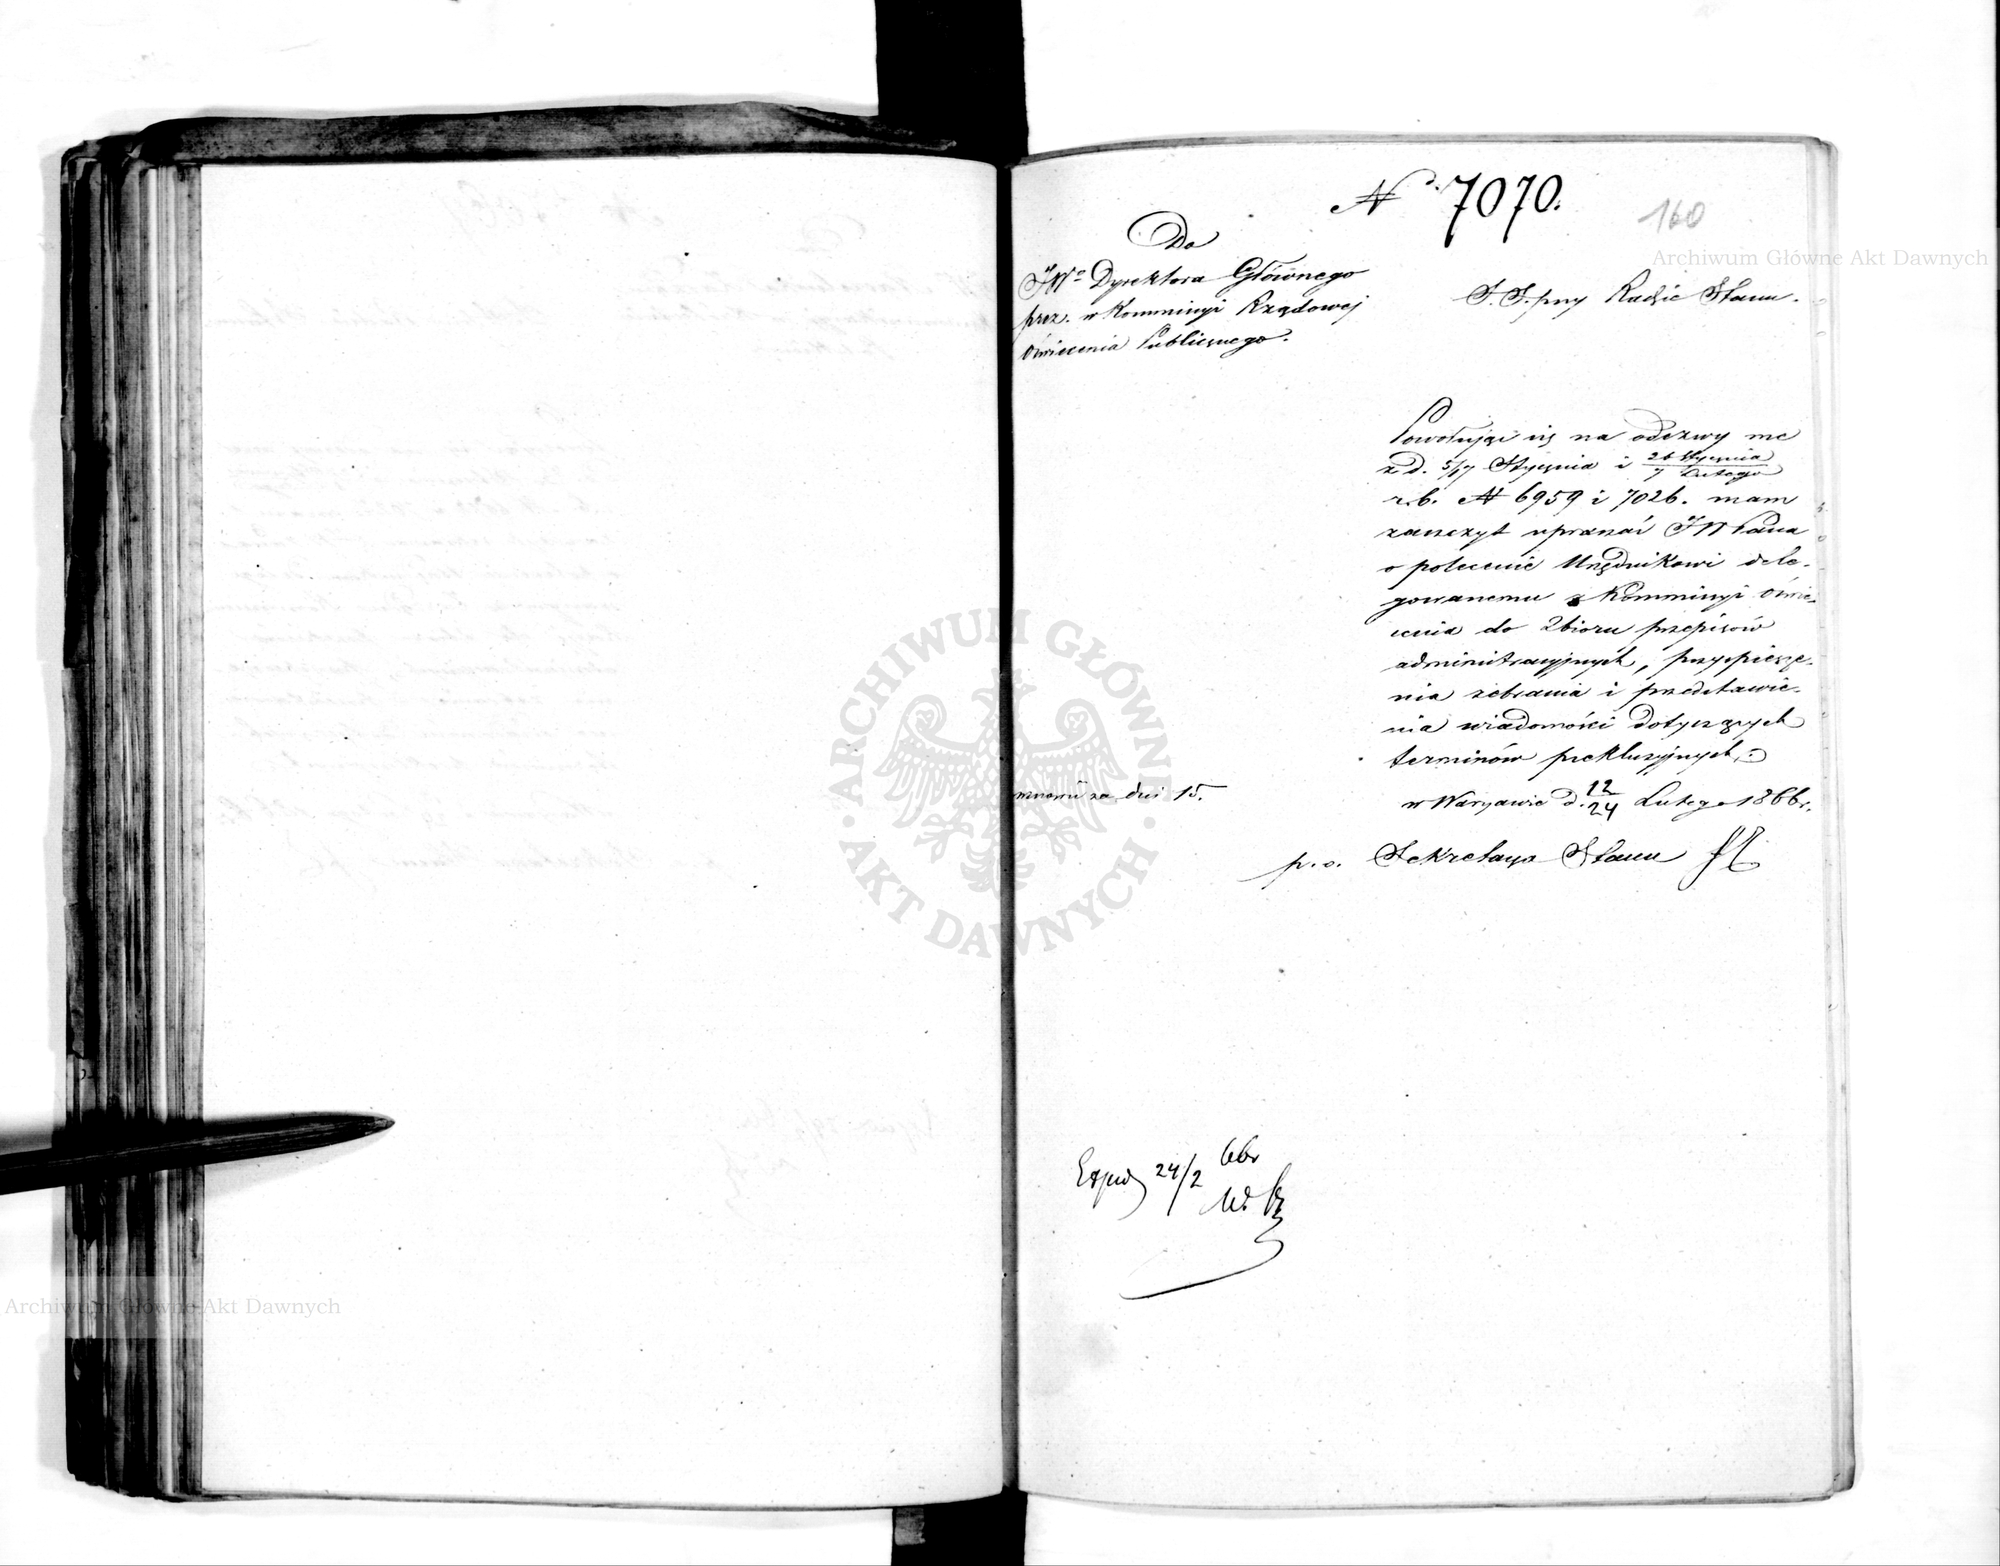 N 7070.
160
Archiwum Główne Akt Dawnych
Do
JWo Dyrektora Głównego
prez. w Kommissyi Rządowej
Oświecenia Publicznego.
S. S. przy Radzie Stanu.
Powołując się na odezwy me
z d. 5/17 Stycznia i 26 Stycznia / 7 Lutego
r. b. N 6959 i 7026. mam
zaszczyt upraszać JW Pana
o polecenie Urzędnikowi dele-
gowanemu z Kommissyi Oświe-
cenia do Zbioru przepisów
administracyjnych, przyspiesze-
nia zebrania i przedstawie-
nia wiadomości dotyczących
terminów prekluzyjnych.
w Warszawie d. 12/24 Lutego 1866 r.
za dni 15.
p. o. Sekretarza Stanu
Exped 24/2 66r
ARCHIWUM GŁÓWNE
AKT DAWNYCH
Archiwum Główne Akt Dawnych